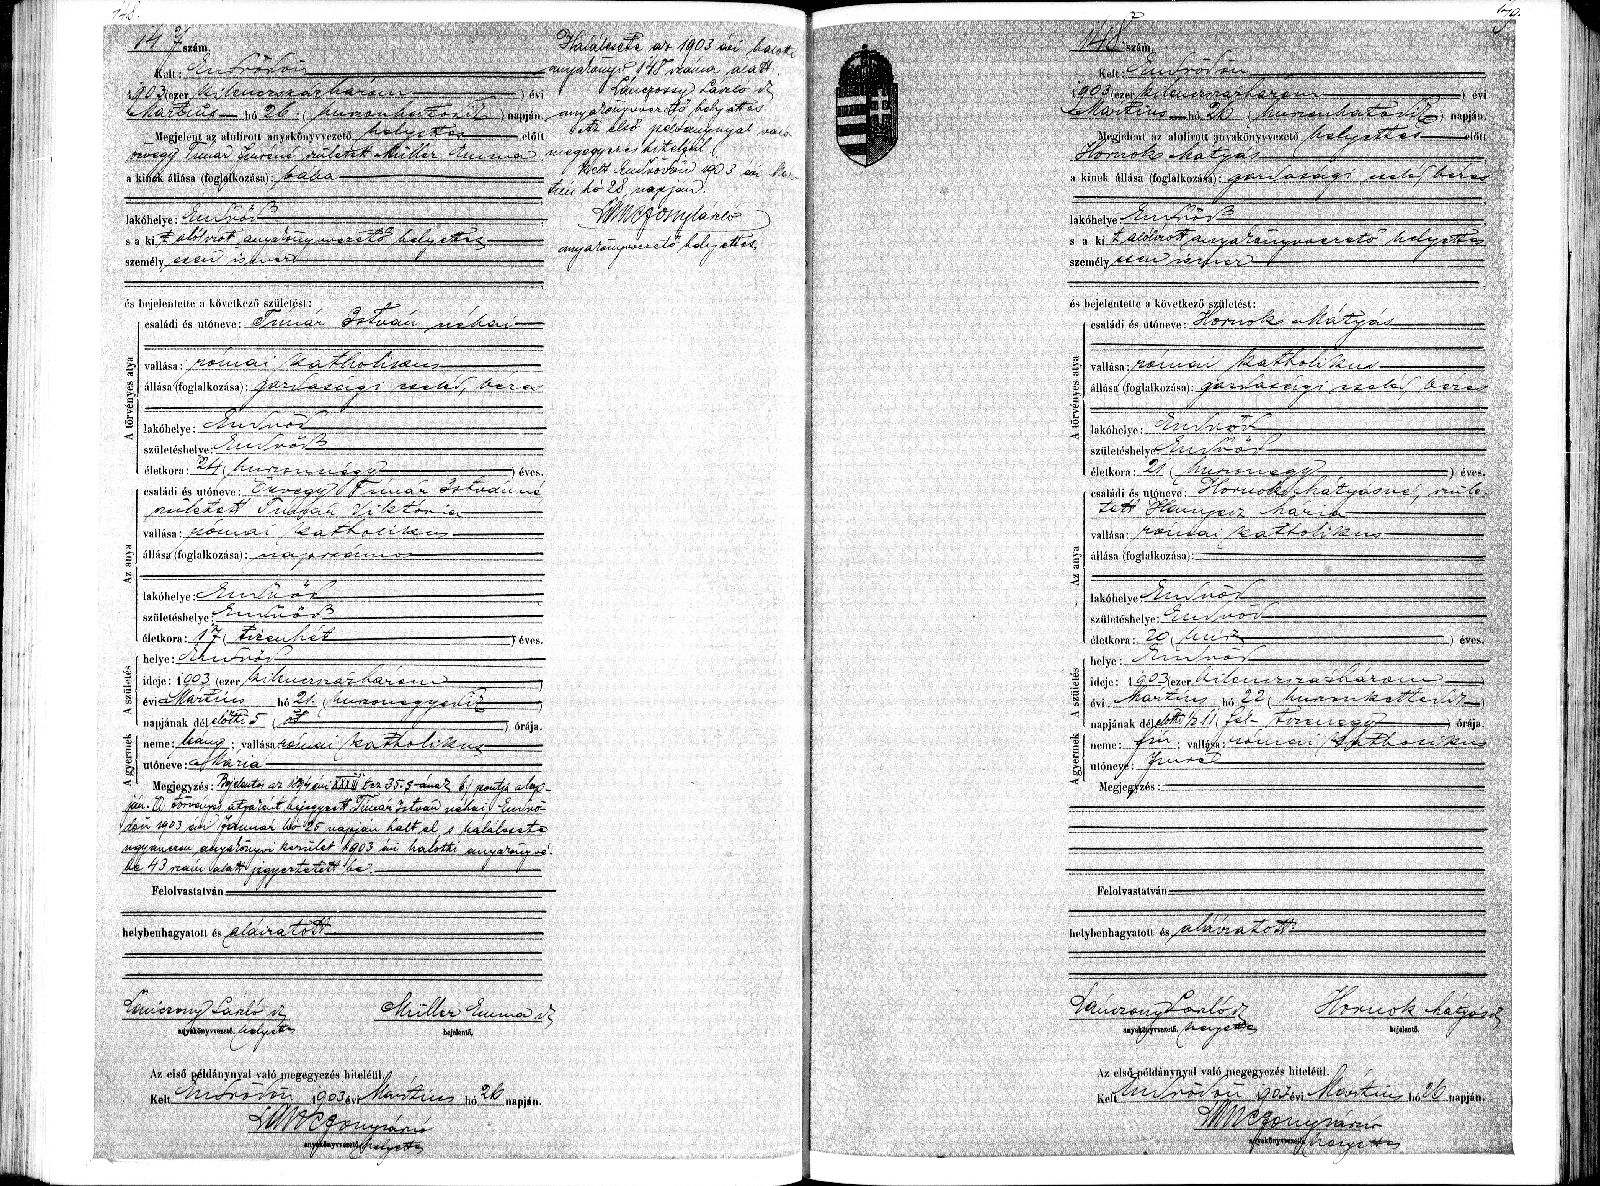 147 szám.
Kelt: Endrődön
1903 (ezer kilenczszázhárom) évi
Martius hó 26. (huszonhatodik) napján.
Megjelent az alulirott anyakönyvvezető helyettes előtt
özvegy Timár Imréné született Müller Emma
a kinek állása (foglalkozása): bába
lakóhelye: Endrőd
s a kit alólirott anyakönyvvezető helyettes
személyesen ismer
és bejelentette a következő születést:
A törvényes atya
családi és utóneve: Timár István néhai
vallása: római katholikus
állása (foglalkozása): gazdasági cseléd, béres
lakóhelye: Endrőd
születéshelye: Endrőd
életkora: 24 (huszonnégy) éves.
Az anya
családi és utóneve: Özvegy Timár Istvánné
született Timár Viktória
vallása: római katholikus
állása (foglalkozása): napszámos
lakóhelye: Endrőd
születéshelye: Endrőd
életkora: 17 (tizenhét) éves.
A születés
helye: Endrőd
ideje: 1903 (ezer kilenczszázhárom)
évi Martius hó 21. (huszonegyedik)
napjának délelőtti 5 (öt) órája.
A gyermek
neme: leány; vallása: római katholikus
utóneve: Mária
Megjegyzés: Bejelentés az 1894 évi XXXIII tcz 35. §-ának b.) pontja alap-
ján. A törvényes atyaként bejegyzett Timár István néhai, Endrő-
dön 1903 évi Január hó 25 napján halt el, s halálesete
ugyanezen anyakönyvi kerület 1903 évi halotti anyakönyvé-
be 43 szám alatt jegyeztetett be.
Felolvastatván
helybenhagyatott és aláiratott
Lánczony László
anyakönyvvezető helyettes
Müller Emma
bejelentő.
Az első példánynyal való megegyezés hiteléül.
Kelt Endrődön 1903 évi Mártius hó 26 napján.
Lánczony László
anyakönyvvezető helyettes
Halálesete az 1903 évi halotti
anyakönyv 148 száma alatt.
László
anyakönyvvezető helyettes
Az első példánynyal való
megegyezés hiteléül.
Kelt Endrődön 1903 évi Már-
tius hó 28 napján.
Lánczony László
anyakönyvvezető helyettes.
148 szám.
Kelt: Endrődön
1903 (ezer kilenczszázhárom) évi
Martius hó 26 (huszonhatodik) napján.
Megjelent az alulirott anyakönyvvezető helyettes előtt
Hornok Mátyás
a kinek állása (foglalkozása): gazdasági cseléd, béres
lakóhelye: Endrőd
s a kit alólirott anyakönyvvezető helyettes
személyesen ismer
és bejelentette a következő születést:
A törvényes atya
családi és utóneve: Hornok Mátyás
vallása: római katholikus
állása (foglalkozása): gazdasági cseléd, béres
lakóhelye: Endrőd
születéshelye: Endrőd
életkora: éves.
Az anya
családi és utóneve: Hornok Mátyásné, szüle-
tett Hunyez Mária
vallása: római katholikus
állása (foglalkozása):
lakóhelye: Endrőd
születéshelye: Endrőd
életkora: 20 (húsz) éves.
A születés
helye: Endrőd
ideje: 1903 (ezer kilenczszázhárom)
évi Martius hó 22 (huszonkettedik)
napjának délelőtti 1/2 11 (fél tizenegy) órája.
A gyermek
neme: fiú; vallása: római katholikus
utóneve: Imre
Megjegyzés:
Felolvastatván
helybenhagyatott és aláiratott.
Lánczony László
anyakönyvvezető helyettes
Hornok Mátyás
bejelentő.
Az első példánynyal való megegyezés hiteléül.
Kelt Endrődön 1903 évi Mártius hó 26 napján.
Lánczony László
anyakönyvvezető helyettes